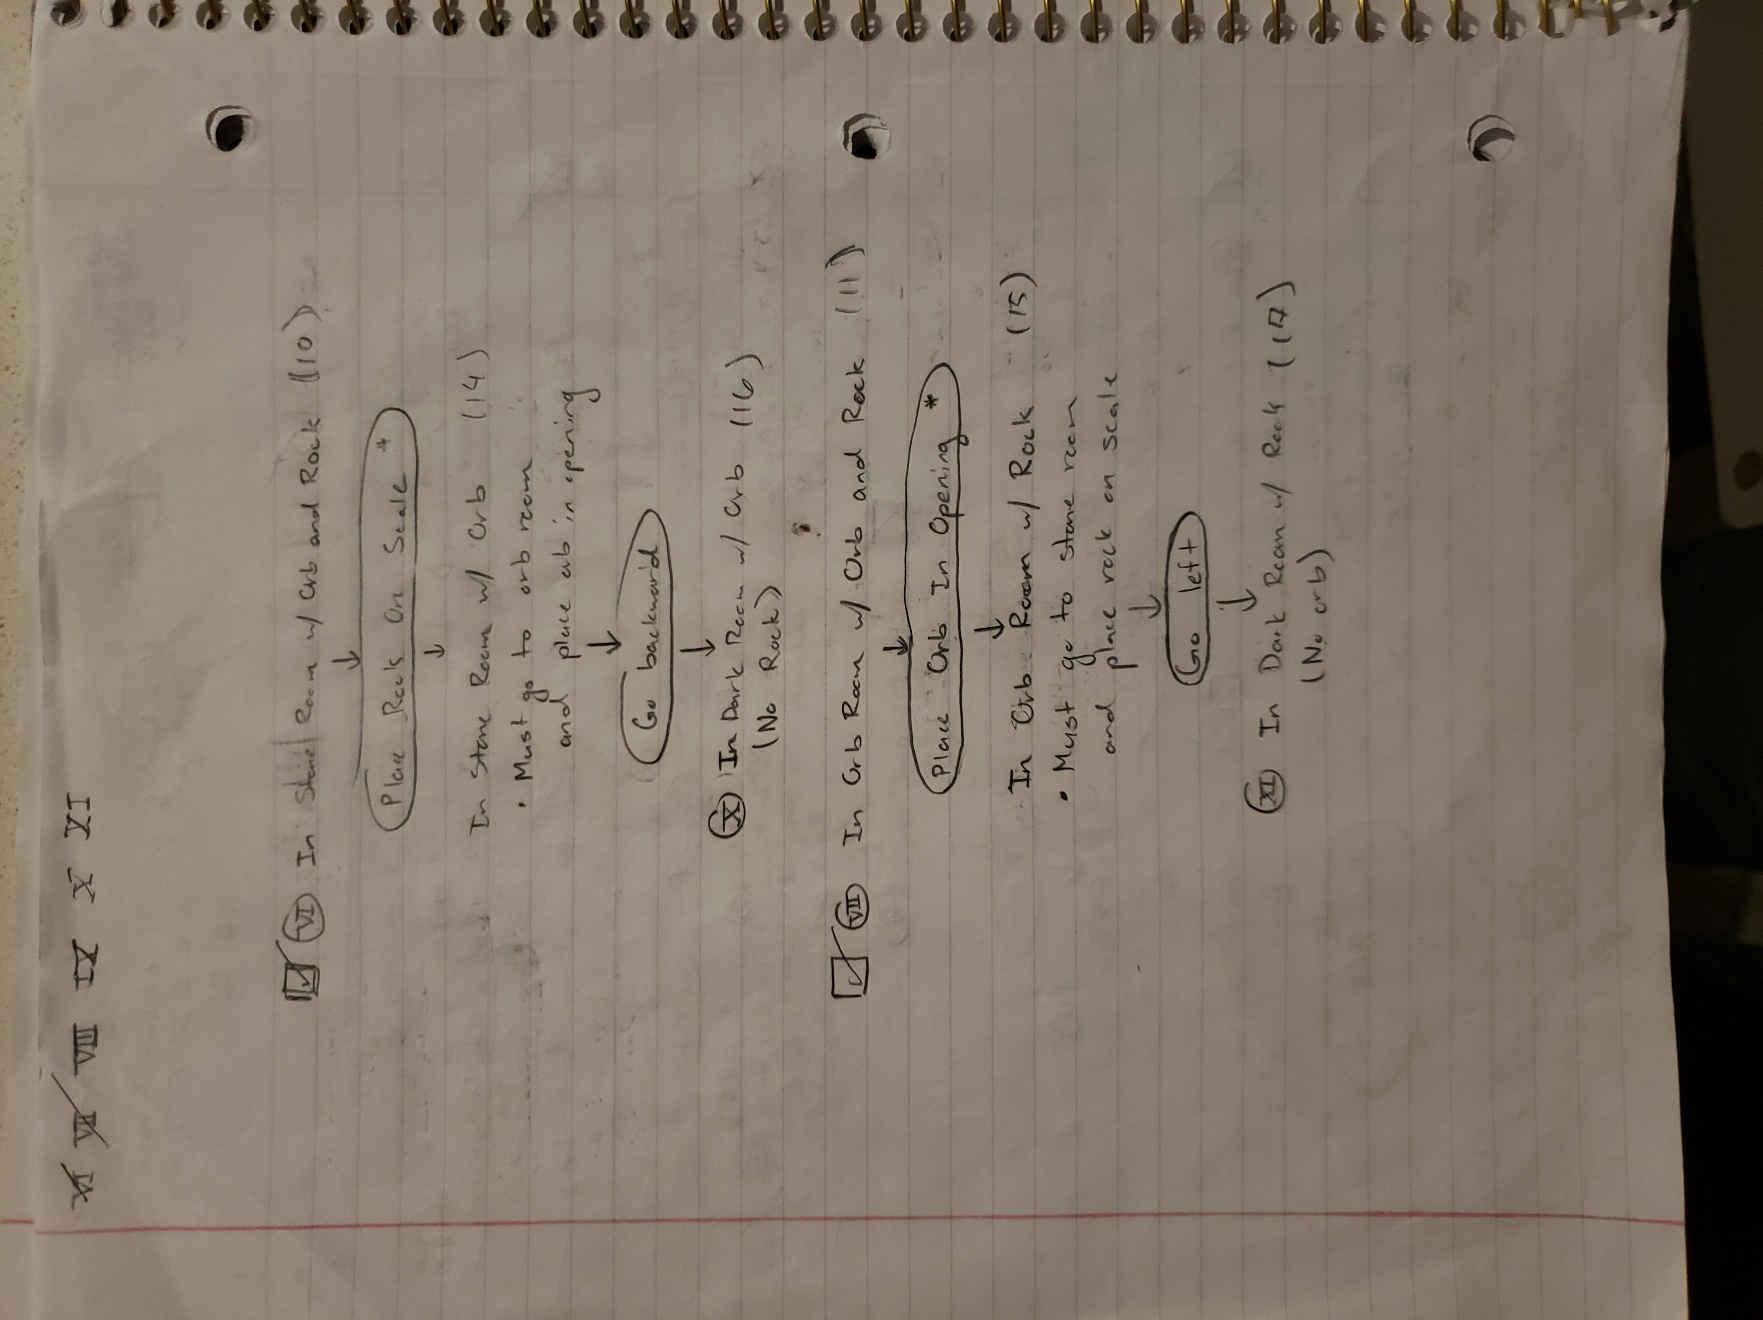 VI VII VIII IX X XI
VI In Stone Room w/ Orb and Rock (10)
↓
Place Rock On Scale *
↓
In Stone Room w/ Orb (14)
• Must go to orb room
and place orb in opening
↓
Go backward
↓
X In Dark Room w/ Orb (16)
(No Rock)
VII In Orb Room w/ Orb and Rock (11)
↓
Place Orb In Opening *
↓
In Orb Room w/ Rock (15)
• Must go to stone room
and place rock on scale
↓
Go left
↓
XI In Dark Room w/ Rock (17)
(No orb)